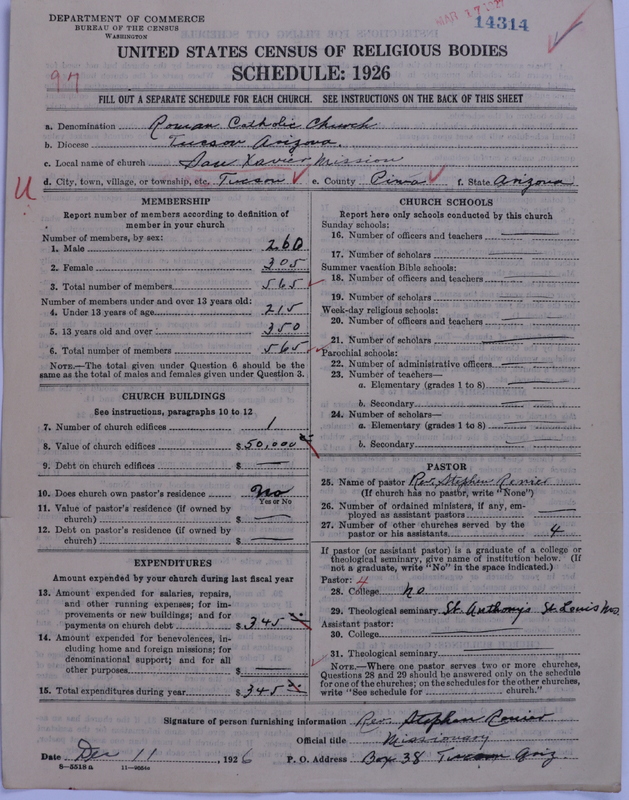 DEPARTMENT OF COMMERCE
BUREAU OF THE CENSUS
WASHINGTON
MAR 17 1927
14314
UNITED STATES CENSUS OF RELIGIOUS BODIES
SCHEDULE: 1926
97
FILL OUT A SEPARATE SCHEDULE FOR EACH CHURCH. SEE INSTRUCTIONS ON THE BACK OF THIS SHEET
a. Denomination Roman Catholic Church
b. Diocese Tucson Arizona.
c. Local name of church San Xavier Mission
U d. City, town, village, or township, etc. Tucson e. County Pima f. State Arizona
MEMBERSHIP
Report number of members according to definition of
member in your church
Number of members, by sex:
1. Male 260
2. Female 305
3. Total number of members 565
Number of members under and over 13 years old:
4. Under 13 years of age 215
5. 13 years old and over 350
6. Total number of members 565
NOTE.—The total given under Question 6 should be the
same as the total of males and females given under Question 3.
CHURCH BUILDINGS
See instructions, paragraphs 10 to 12
7. Number of church edifices 1
8. Value of church edifices $50,000
9. Debt on church edifices $ —
10. Does church own pastor's residence No
Yes or No
11. Value of pastor's residence (if owned by
church) $ —
12. Debt on pastor's residence (if owned by
church) $ —
EXPENDITURES
Amount expended by your church during last fiscal year
13. Amount expended for salaries, repairs,
and other running expenses; for im-
provements or new buildings; and for
payments on church debt $345
14. Amount expended for benevolences, in-
cluding home and foreign missions; for
denominational support; and for all
other purposes $ —
15. Total expenditures during year $345
CHURCH SCHOOLS
Report here only schools conducted by this church
Sunday schools:
16. Number of officers and teachers —
17. Number of scholars —
Summer vacation Bible schools:
18. Number of officers and teachers —
19. Number of scholars —
Week-day religious schools:
20. Number of officers and teachers —
21. Number of scholars —
Parochial schools:
22. Number of administrative officers —
23. Number of teachers—
a. Elementary (grades 1 to 8) —
b. Secondary —
24. Number of scholars—
a. Elementary (grades 1 to 8) —
b. Secondary —
PASTOR
25. Name of pastor Rev. Stephen Renier
(If church has no pastor, write "None")
26. Number of ordained ministers, if any, em-
ployed as assistant pastors —
27. Number of other churches served by the
pastor or his assistants 4
If pastor (or assistant pastor) is a graduate of a college or
theological seminary, give name of institution below. (If
not a graduate, write "No" in the space indicated.)
Pastor: 4
28. College no
29. Theological seminary St. Anthony's St Louis Mo.
Assistant pastor:
30. College —
31. Theological seminary —
NOTE.—Where one pastor serves two or more churches,
Questions 28 and 29 should be answered only on the schedule
for one of the churches; on the schedules for the other churches,
write "See schedule for church."
Signature of person furnishing information Rev. Stephen Renier
Official title Missionary
Date Dec 11, 1926 P. O. Address Box 38 Tucson Ariz.
8—5518 a